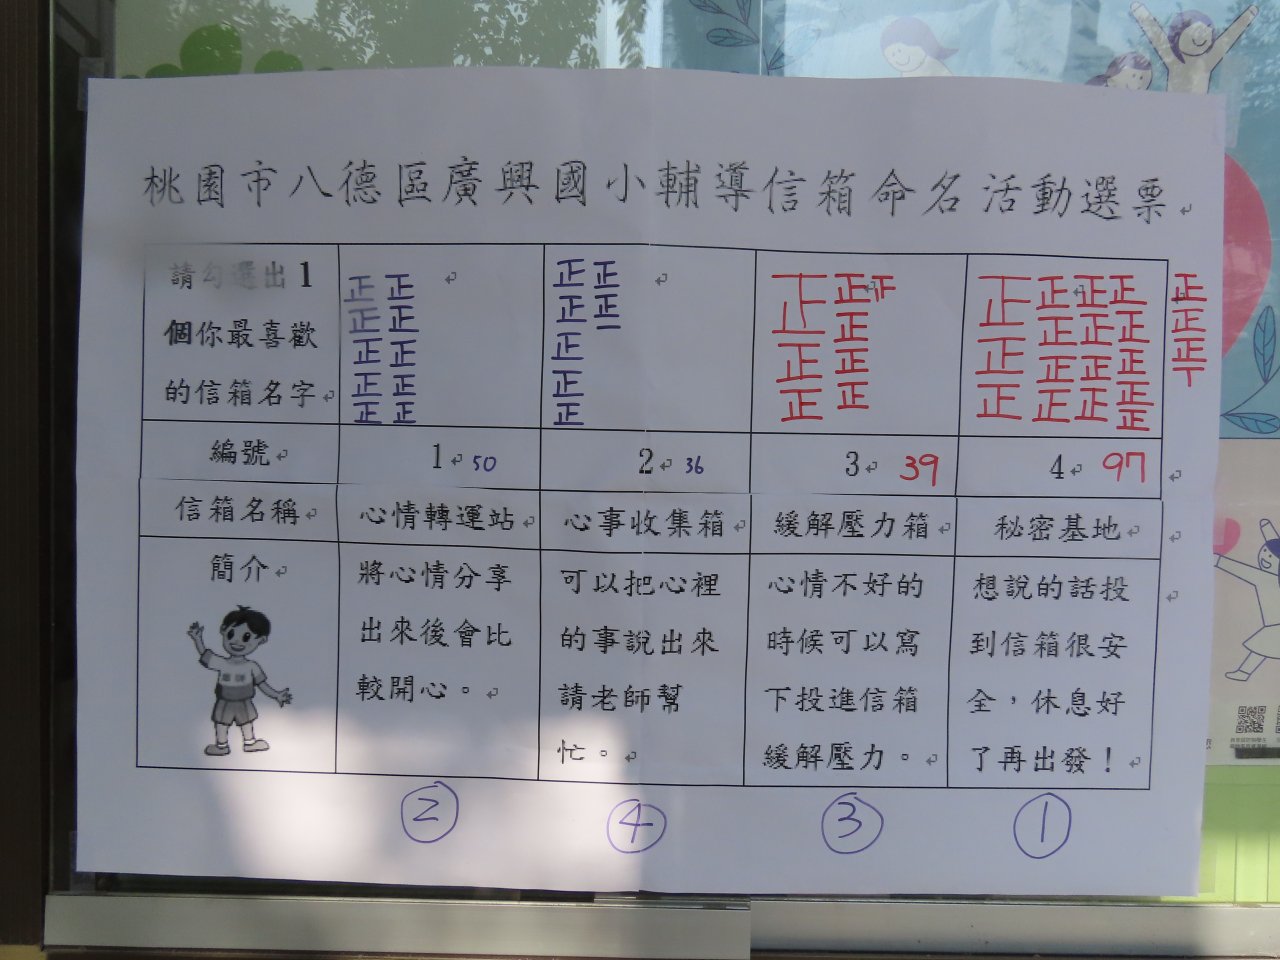 桃園市八德區廣興國小輔導信箱命名活動選票
請勾選出1
個你最喜歡
的信箱名字
正正正正正正正正正正
正正正正正正正
正正正正正正正
正正正正正正正正正正正正正正正正正正正
編號
1 50
2 36
3 39
4 97
信箱名稱
心情轉運站
心事收集箱
緩解壓力箱
秘密基地
簡介
將心情分享
出來後會比
較開心。
可以把心裡
的事說出來
請老師幫
忙。
心情不好的
時候可以寫
下投進信箱
緩解壓力。
想說的話投
到信箱很安
全，休息好
了再出發！
②
④
③
①